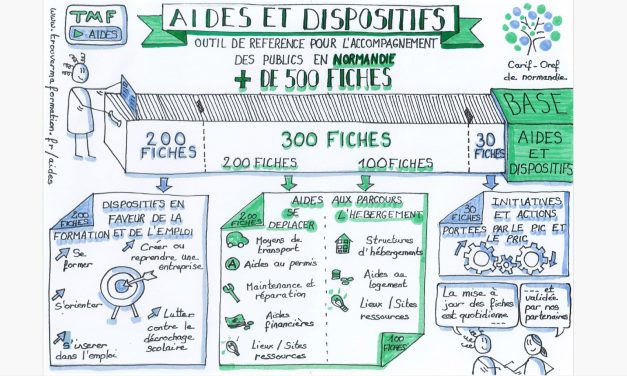 TMF
AIDES
www.trouvermaformation.fr/aides
AIDES ET DISPOSITIFS
OUTIL DE REFERENCE POUR L'ACCOMPAGNEMENT
DES PUBLICS EN NORMANDIE
+ DE 500 FICHES
Carif-Oref
de normandie
BASE
AIDES
ET
DISPOSITIFS
200
FICHES
300 FICHES
200 FICHES
100 FICHES
30
FICHES
200
FICHES
DISPOSITIFS EN
FAVEUR DE LA
FORMATION ET DE L'EMPLOI
Se
former
Créer ou
reprendre une
entreprise
S'orienter
Lutter
contre le
décrochage
scolaire
S'insérer
dans l'emploi
200
FICHES
AIDES
SE
DEPLACER
Moyens de
transport
A
Aides au permis
Maintenance et
réparation
Aides
financières
Lieux / Sites
ressources
AUX PARCOURS
L'HEBERGEMENT
Structures
d'hébergements
Aides au
logement
Lieux / Sites
ressources
100
FICHES
30
FICHES
INITIATIVES
ET ACTIONS
PORTEES PAR LE PIC ET
LE PRIC
La mise à
jour des fiches
est quotidienne
... et
validée
par nos
partenaires